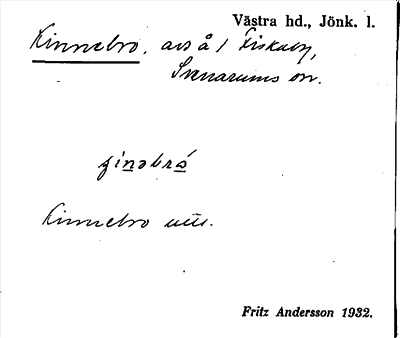 Västra hd., Jönk. l.
Kinnebro, avs å / Fiskaby,
Svenarums sn.
ʒinəbró
Kinnebro
Fritz Andersson 1932.